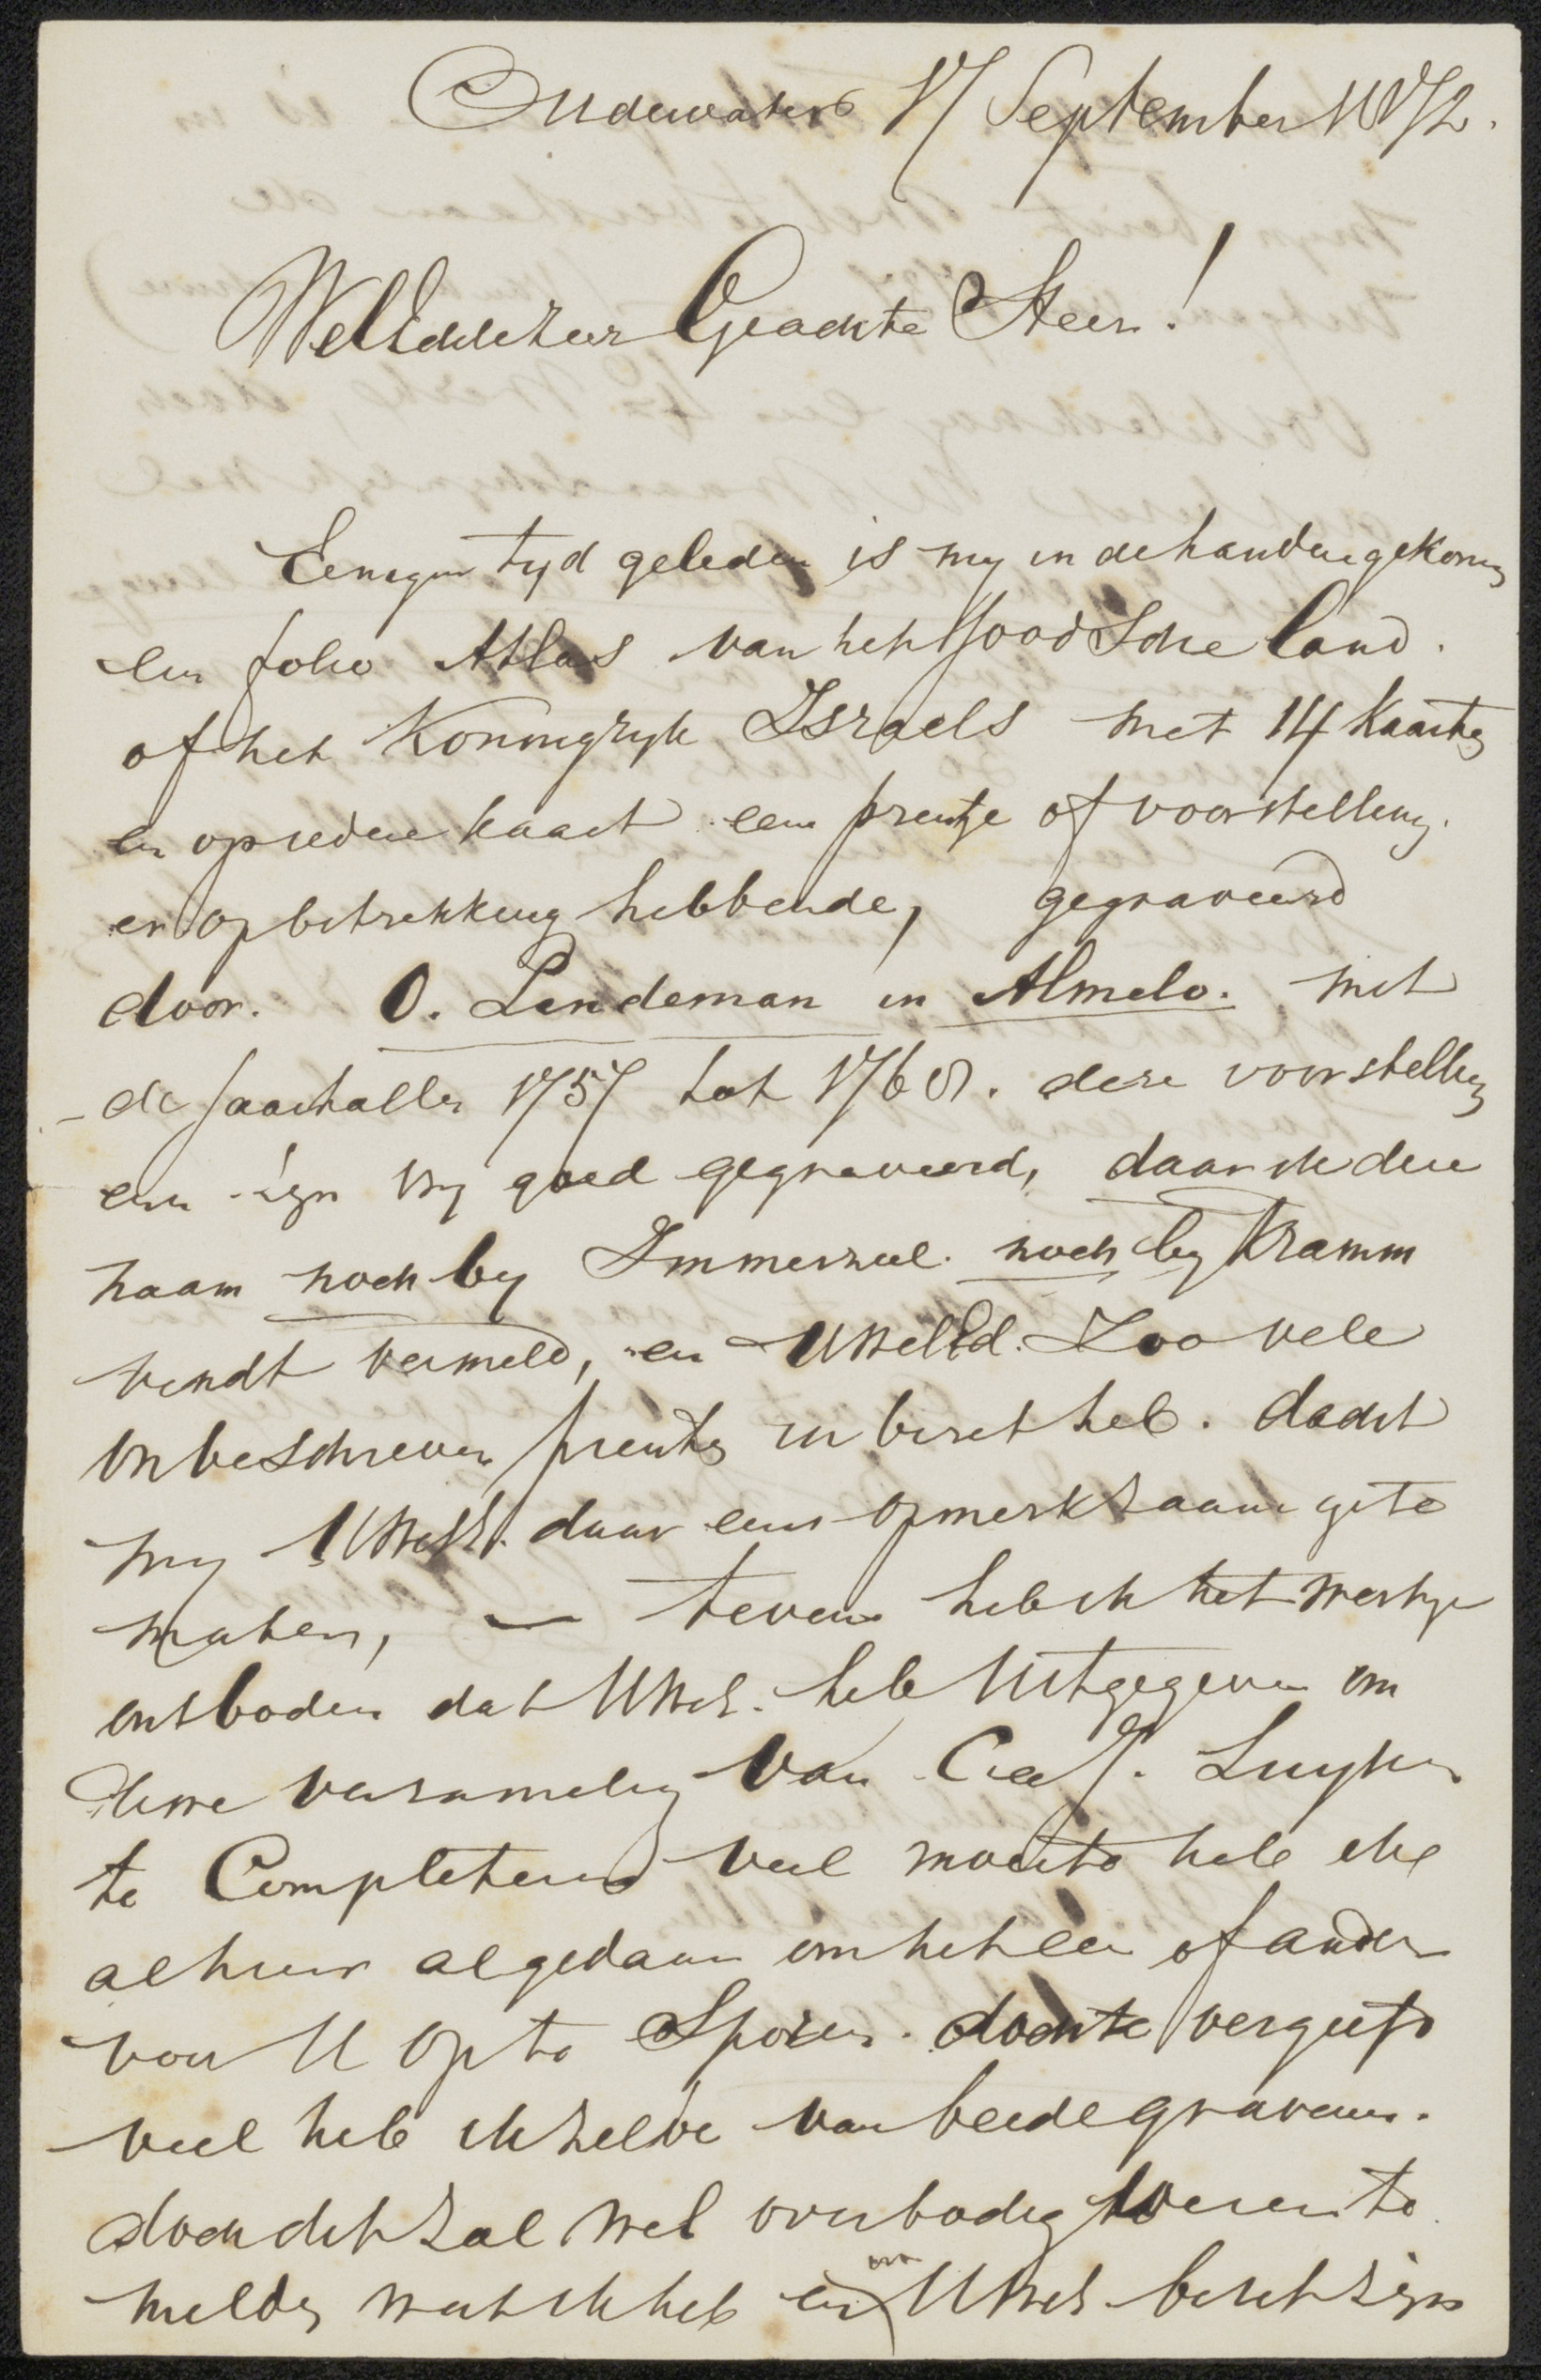 Oudewater 17 September 1872.
WelEdele Zeer Geachte Heer!
Eenigen tyd geleden is my in de handen gekomen
een folio Atlas van het Joodsche land.
of het Koningryk Israels met 14 kaarten
en op iedere kaart een prentje of voorstelling.
er op betrekking hebbende, gegraveerd
door. O. Lindeman in Almelo. met
de Jaartallen 1757 tot 1768. deze voorstelling
en zyn vry goed gegraveerd, daar ik dien
naam noch by Immerzeel. noch by Kramm
vindt vermeld, en UWelEd. Zoo vele
onbeschreven prenten in bezit heb. dacht
my UWelE. daar eens opmerkzaam op te
maken, — tevens heb ik het werkje
ontboden dat UWelE. heb Uitgegeven om
Uwe verzameling van C en J. Luyken
te Completeren veel moeite heb ik
alhier al gedaan om het een of ander
voor U op te Sporen. doch te vergeefs
veel heb ik zelve van beide graveurs.
doch dit zal wel overbodig wezen te
melden wat ik heb en om UWelE bezit zijn